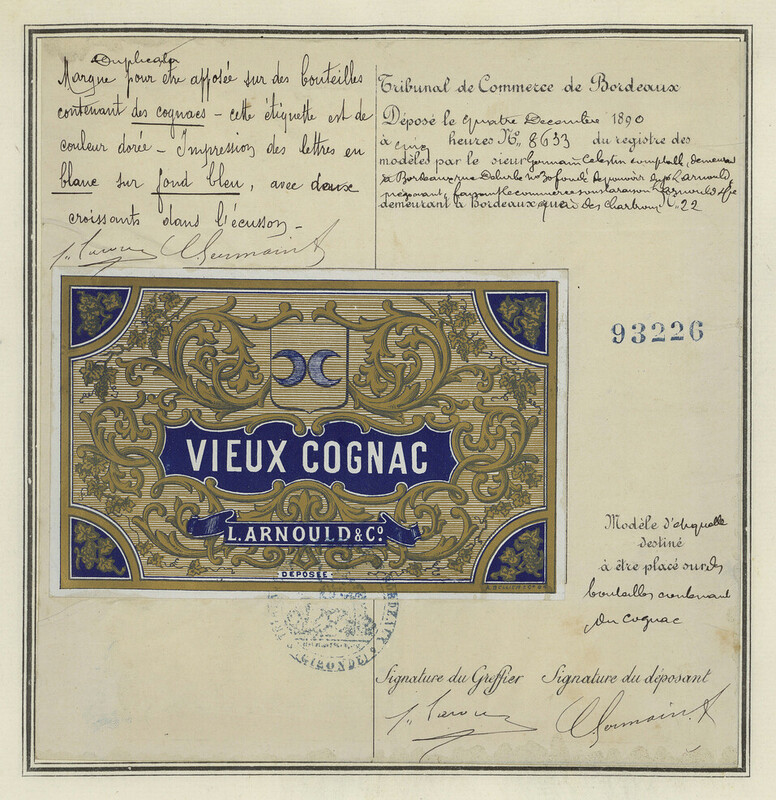 Duplicata
Marque pour être apposée sur des bouteilles
contenant des cognacs – cette étiquette est de
couleur dorée – Impression des lettres en
blanc sur fond bleu, avec deux
croissants dans l'écusson –
Germain
Tribunal de Commerce de Bordeaux
Déposé le quatre Decembre 1890
à cinq heures No. 8633 du registre des
modèles par le sieur Germain Celestin comptable, demeurant
à Bordeaux rue No 30 fondé de pouvoir de L. Arnould,
négociant, faisant le commerce sous la raison L. Arnould & Cie
demeurant à Bordeaux quai des Chartrons No. 22
93226
VIEUX COGNAC
L. ARNOULD & Co.
DÉPOSÉE
BORDEAUX
GIRONDE
Modèle d'etiquette
destiné
à être placé sur des
bouteilles contenant
du cognac
Signature du Greffier Signature du déposant
Germain